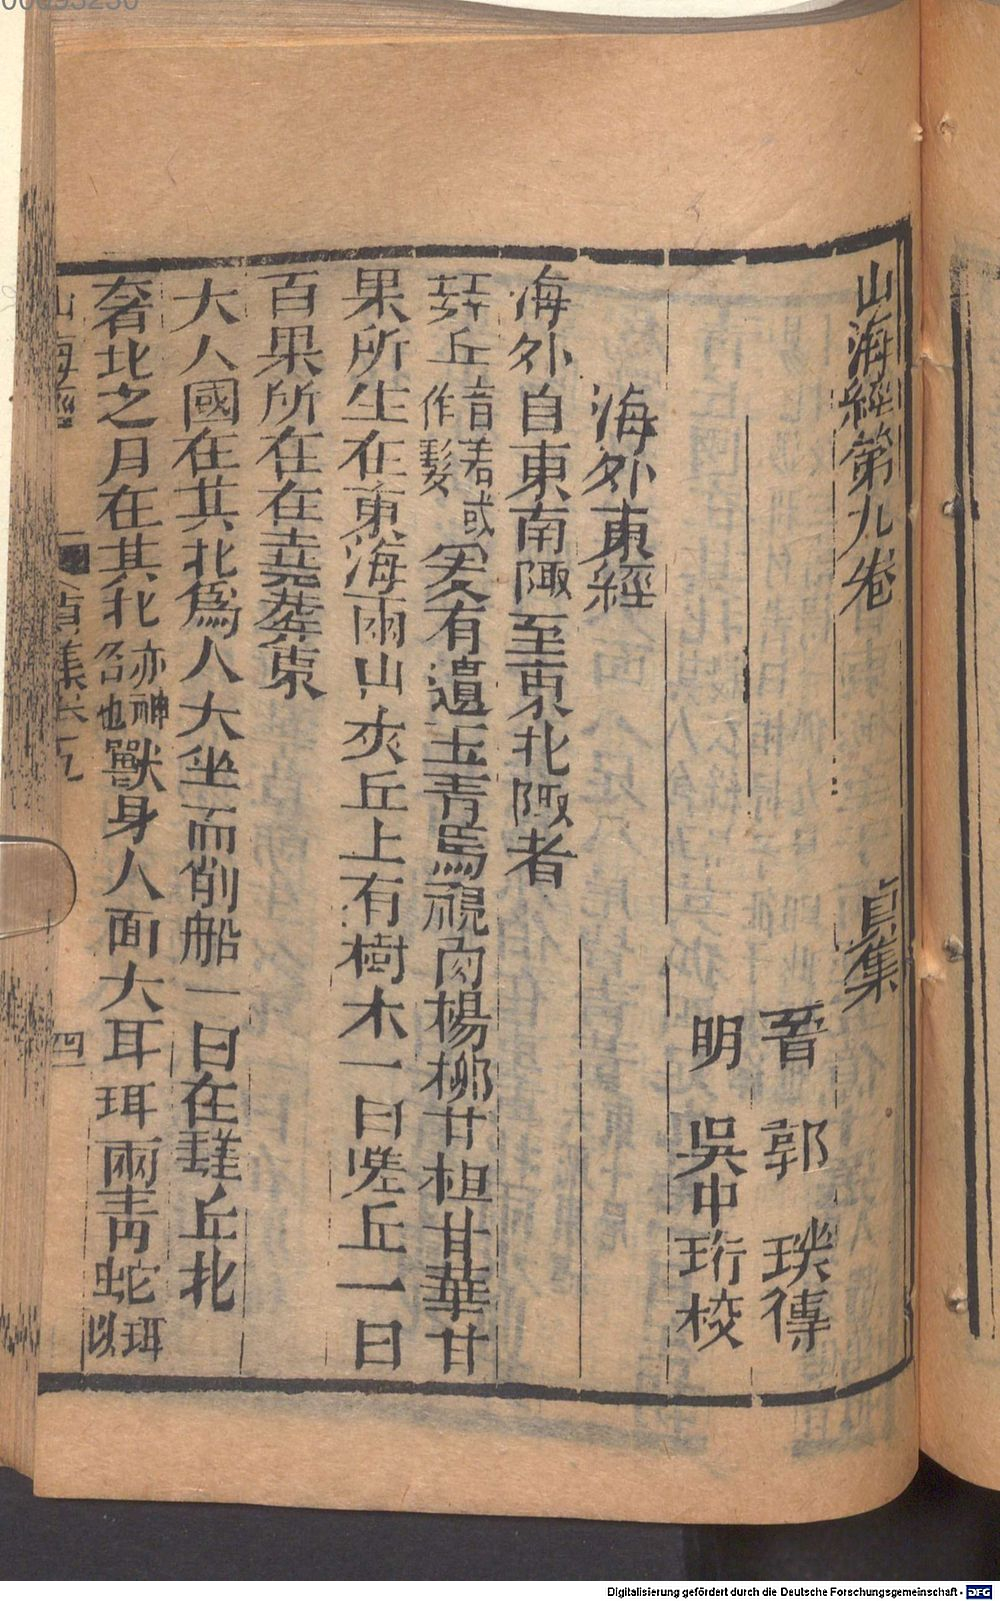 00095250
山海經第九卷　貞集
晉　郭　璞傳
明　吳中珩校
海外東經
海外自東南陬至東北陬者
𨲠丘音嗟或作髮爰有遺玉青馬視肉楊柳甘柤甘華甘
果所生在東海兩山夾丘上有樹木一曰嗟丘一曰
百果所在在堯葬東
大人國在其北爲人大坐而削船一曰在𨲠丘北
奢北之月在其北亦神名也獸身人面大耳珥兩青蛇珥以
山海經　貞集卷九　四
Digitalisierung gefördert durch die Deutsche Forschungsgemeinschaft - DFG